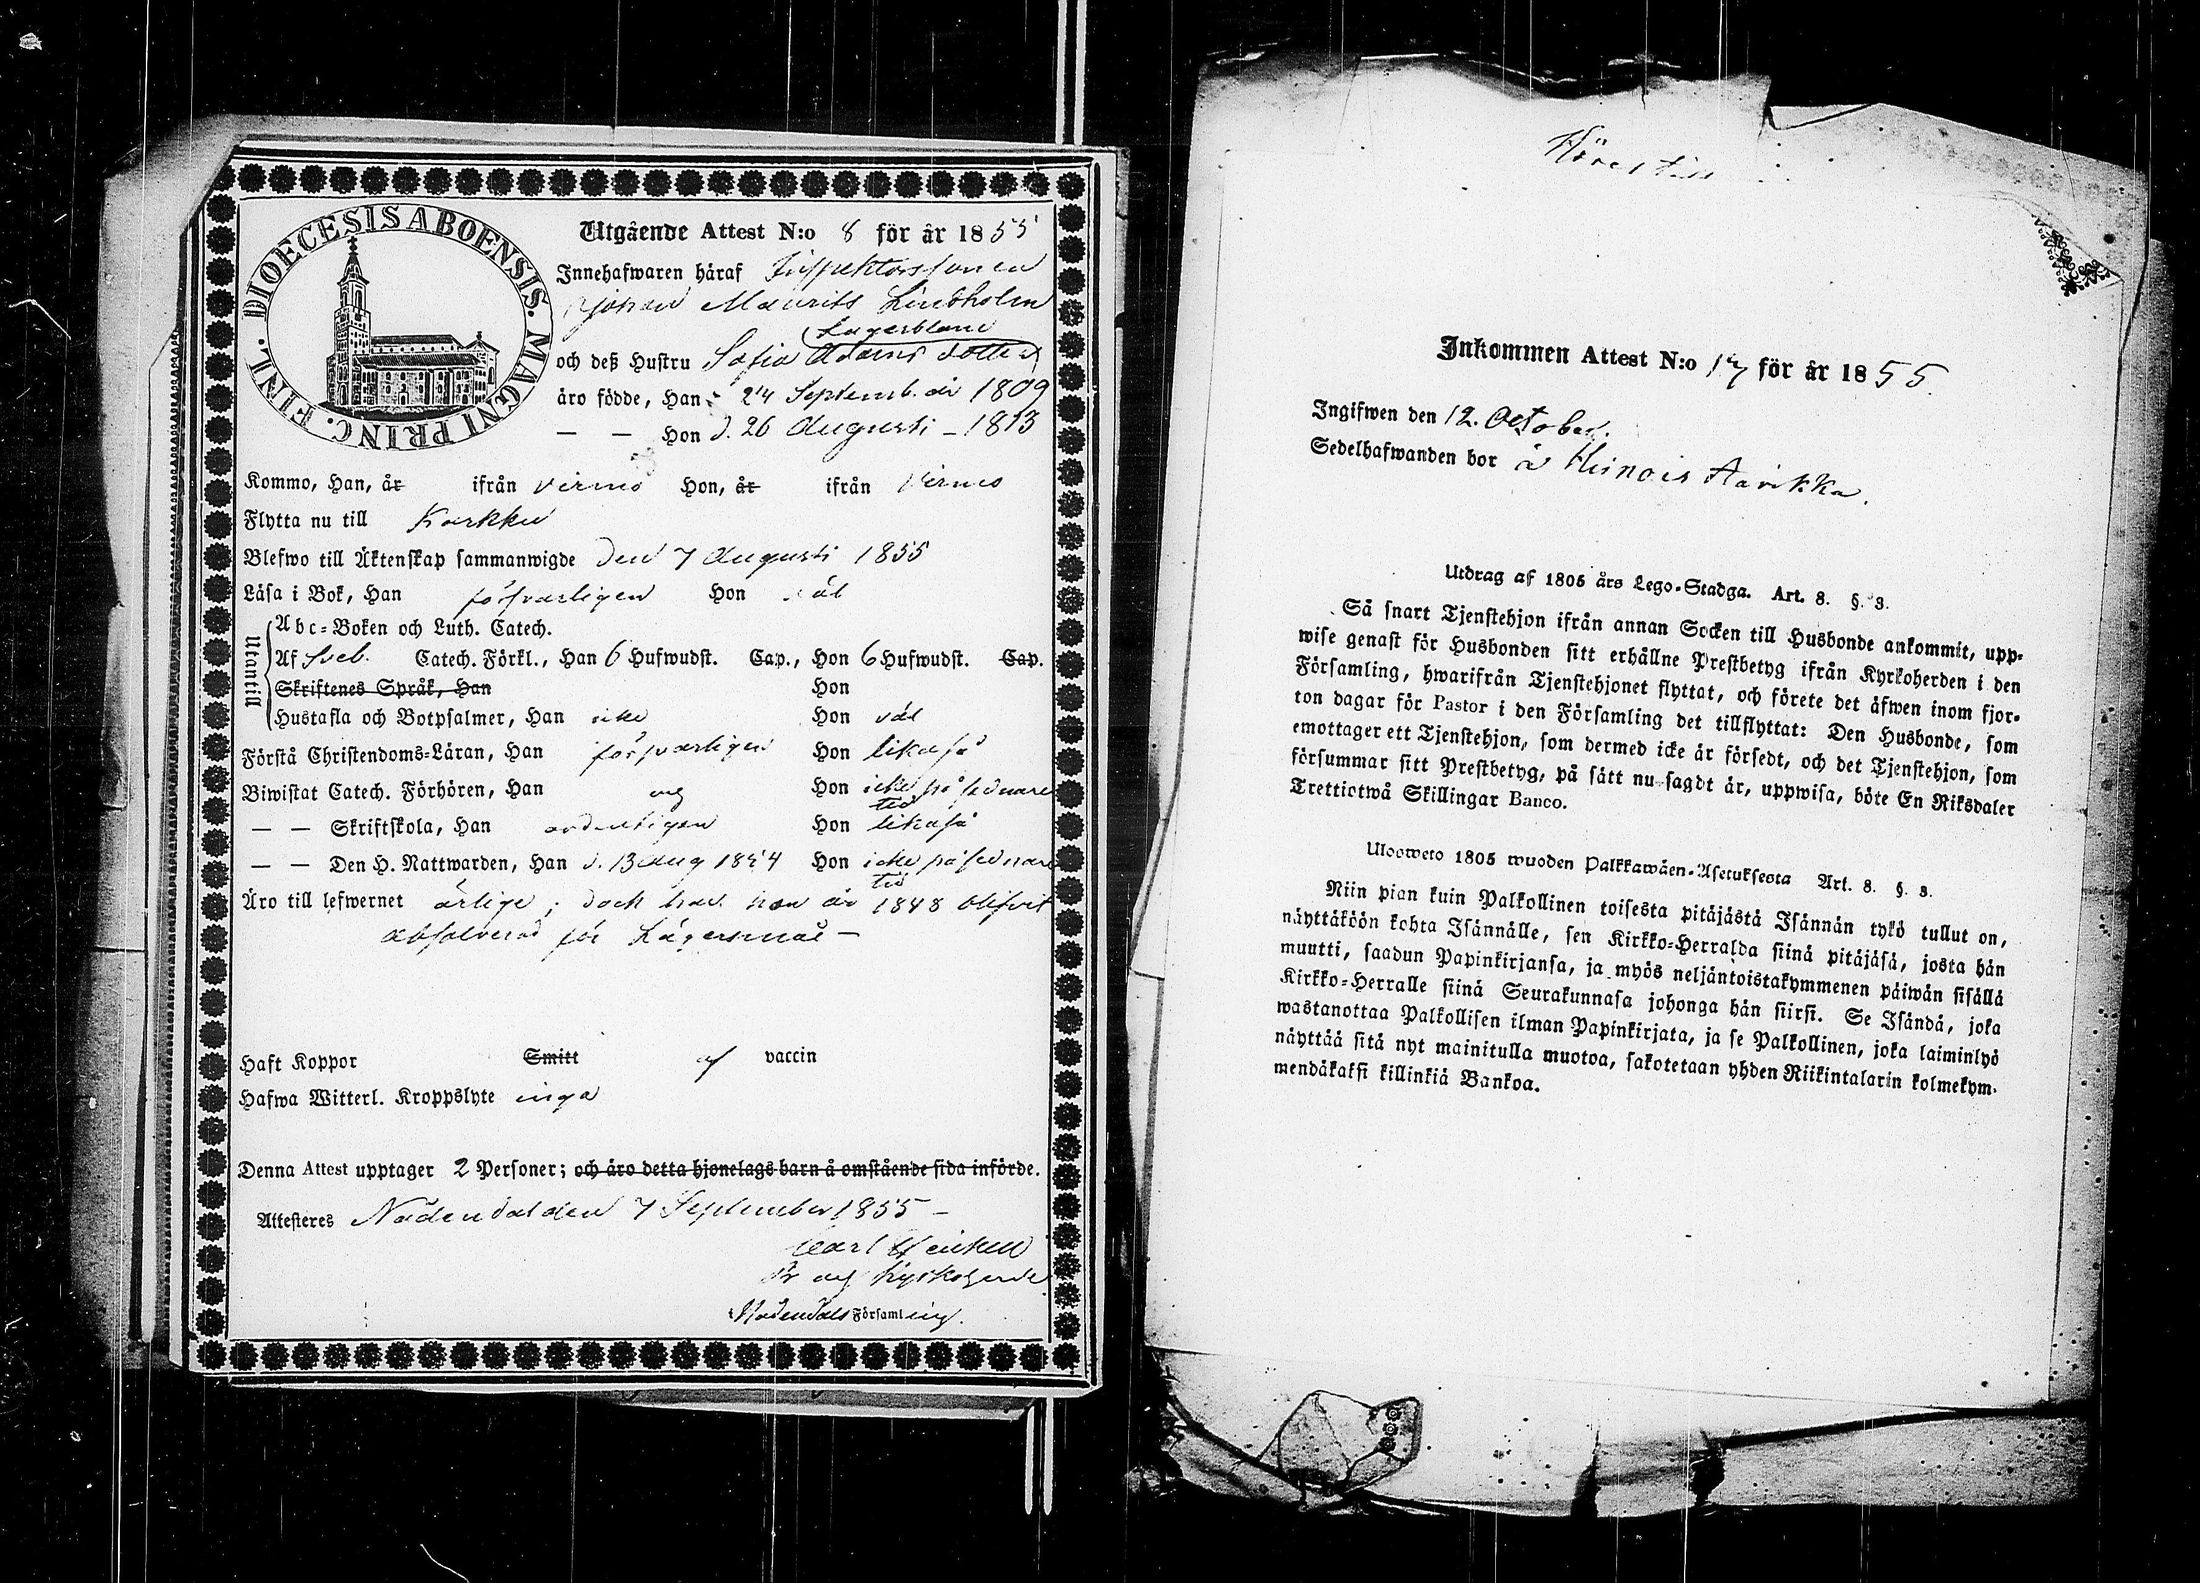 DIOECESIS ABOENSIS. MAGNI PRINC. FINL.
Utgående Attest N:o 8 för år 1855
Innehafwaren häraf Inspektorssonen
Johan Maurits Lindholm
Lagerblane
och deß Hustru Sofia Adams dotter
äro födde, Han: 24 Septemb. år 1809
— — Hon d. 26 Augusti – 1813
Kommo, Han, år ifrån Virmo Hon, år ifrån Virmo
Flytta nu till Karkku
Blefwo till Äktenskap sammanwigde den 7 Augusti 1855
Läsa i Bok, Han försvarligen Hon väl
Utantill
Abc-Boken och Luth. Catech.
Af Sveb. Catech. Förkl., Han 6 Hufwudst. Cap., Hon 6 Hufwudst. Cap.
Skriftenes Språk, Han Hon
Hustafla och Botpsalmer, Han icke Hon väl
Förstå Christendoms-Läran, Han försvarligen Hon likaså
Biwistat Catech. Förhören, Han ej Hon icke på sednare
tid
— — Skriftskola, Han ordentligen Hon likaså
— — Den H. Nattwarden, Han d. 13 Aug 1854 Hon icke på sednare
tid
Äro till lefwernet ärlige; dock har hon år 1848 blifvit
absolverad för Lägersmål –
Haft Koppor Smitt af vaccin
Hafwa Witterl. Kroppslyte inga
Denna Attest upptager 2 Personer; och äro detta hjonelags barn å omstående sida införde.
Attesteres Nådendal den 7 September 1855 –
Carl
Kyrkoherde
i Nådendals Församling.
Inkommen Attest N:o 17 för år 1855.
Ingifwen den 12. October.
Sedelhafwanden bor å Heinois Aarikka.
Utdrag af 1805 års Lego-Stadga. Art. 8. §. 3.
Så snart Tjenstehjon ifrån annan Socken till Husbonde ankommit, upp-
wise genast för Husbonden sitt erhållne Prestbetyg ifrån Kyrkoherden i den
Församling, hwarifrån Tjenstehjonet flyttat, och förete det äfwen inom fjor-
ton dagar för Pastor i den Församling det tillflyttat: Den Husbonde, som
emottager ett Tjenstehjon, som dermed icke är försedt, och det Tjenstehjon, som
försummar sitt Prestbetyg, på sätt nu sagdt är, uppwisa, böte En Riksdaler
Trettiotwå Skillingar Banco.
Uloosweto 1805 wuoden Palkkawäen-Asetuksesta Art. 8. §. 3.
Niin pian kuin Palkollinen toisesta pitäjästä Isännän tykö tullut on,
näyttäköön kohta Isännälle, sen Kirkko-Herralda siinä pitäjäsä, josta hän
muutti, saadun Papinkirjansa, ja myös neljäntoistakymmenen päiwän sisällä
Kirkko-Herralle siinä Seurakunnasa johonga hän siirsi. Se Isändä, joka
wastanottaa Palkollisen ilman Papinkirjata, ja se Palkollinen, joka laiminlyö
näyttää sitä nyt mainitulla muotoa, sakotetaan yhden Riikintalarin kolmekym-
mendäkaksi killinkiä Bankoa.